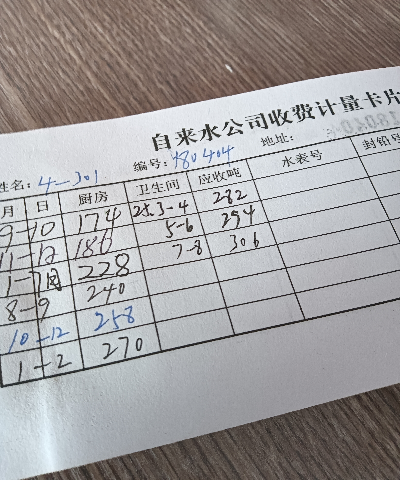 自来水公司收费计量卡片
姓名: 4-301 编号: 180404 地址:
月 日 厨房 卫生间 应收吨 水表号 封铅号
9-10 174 25.3-4 282
11-12 186 5-6 294
1-7月 228 7-8 306
8-9 240
10-12 258
1-2 270